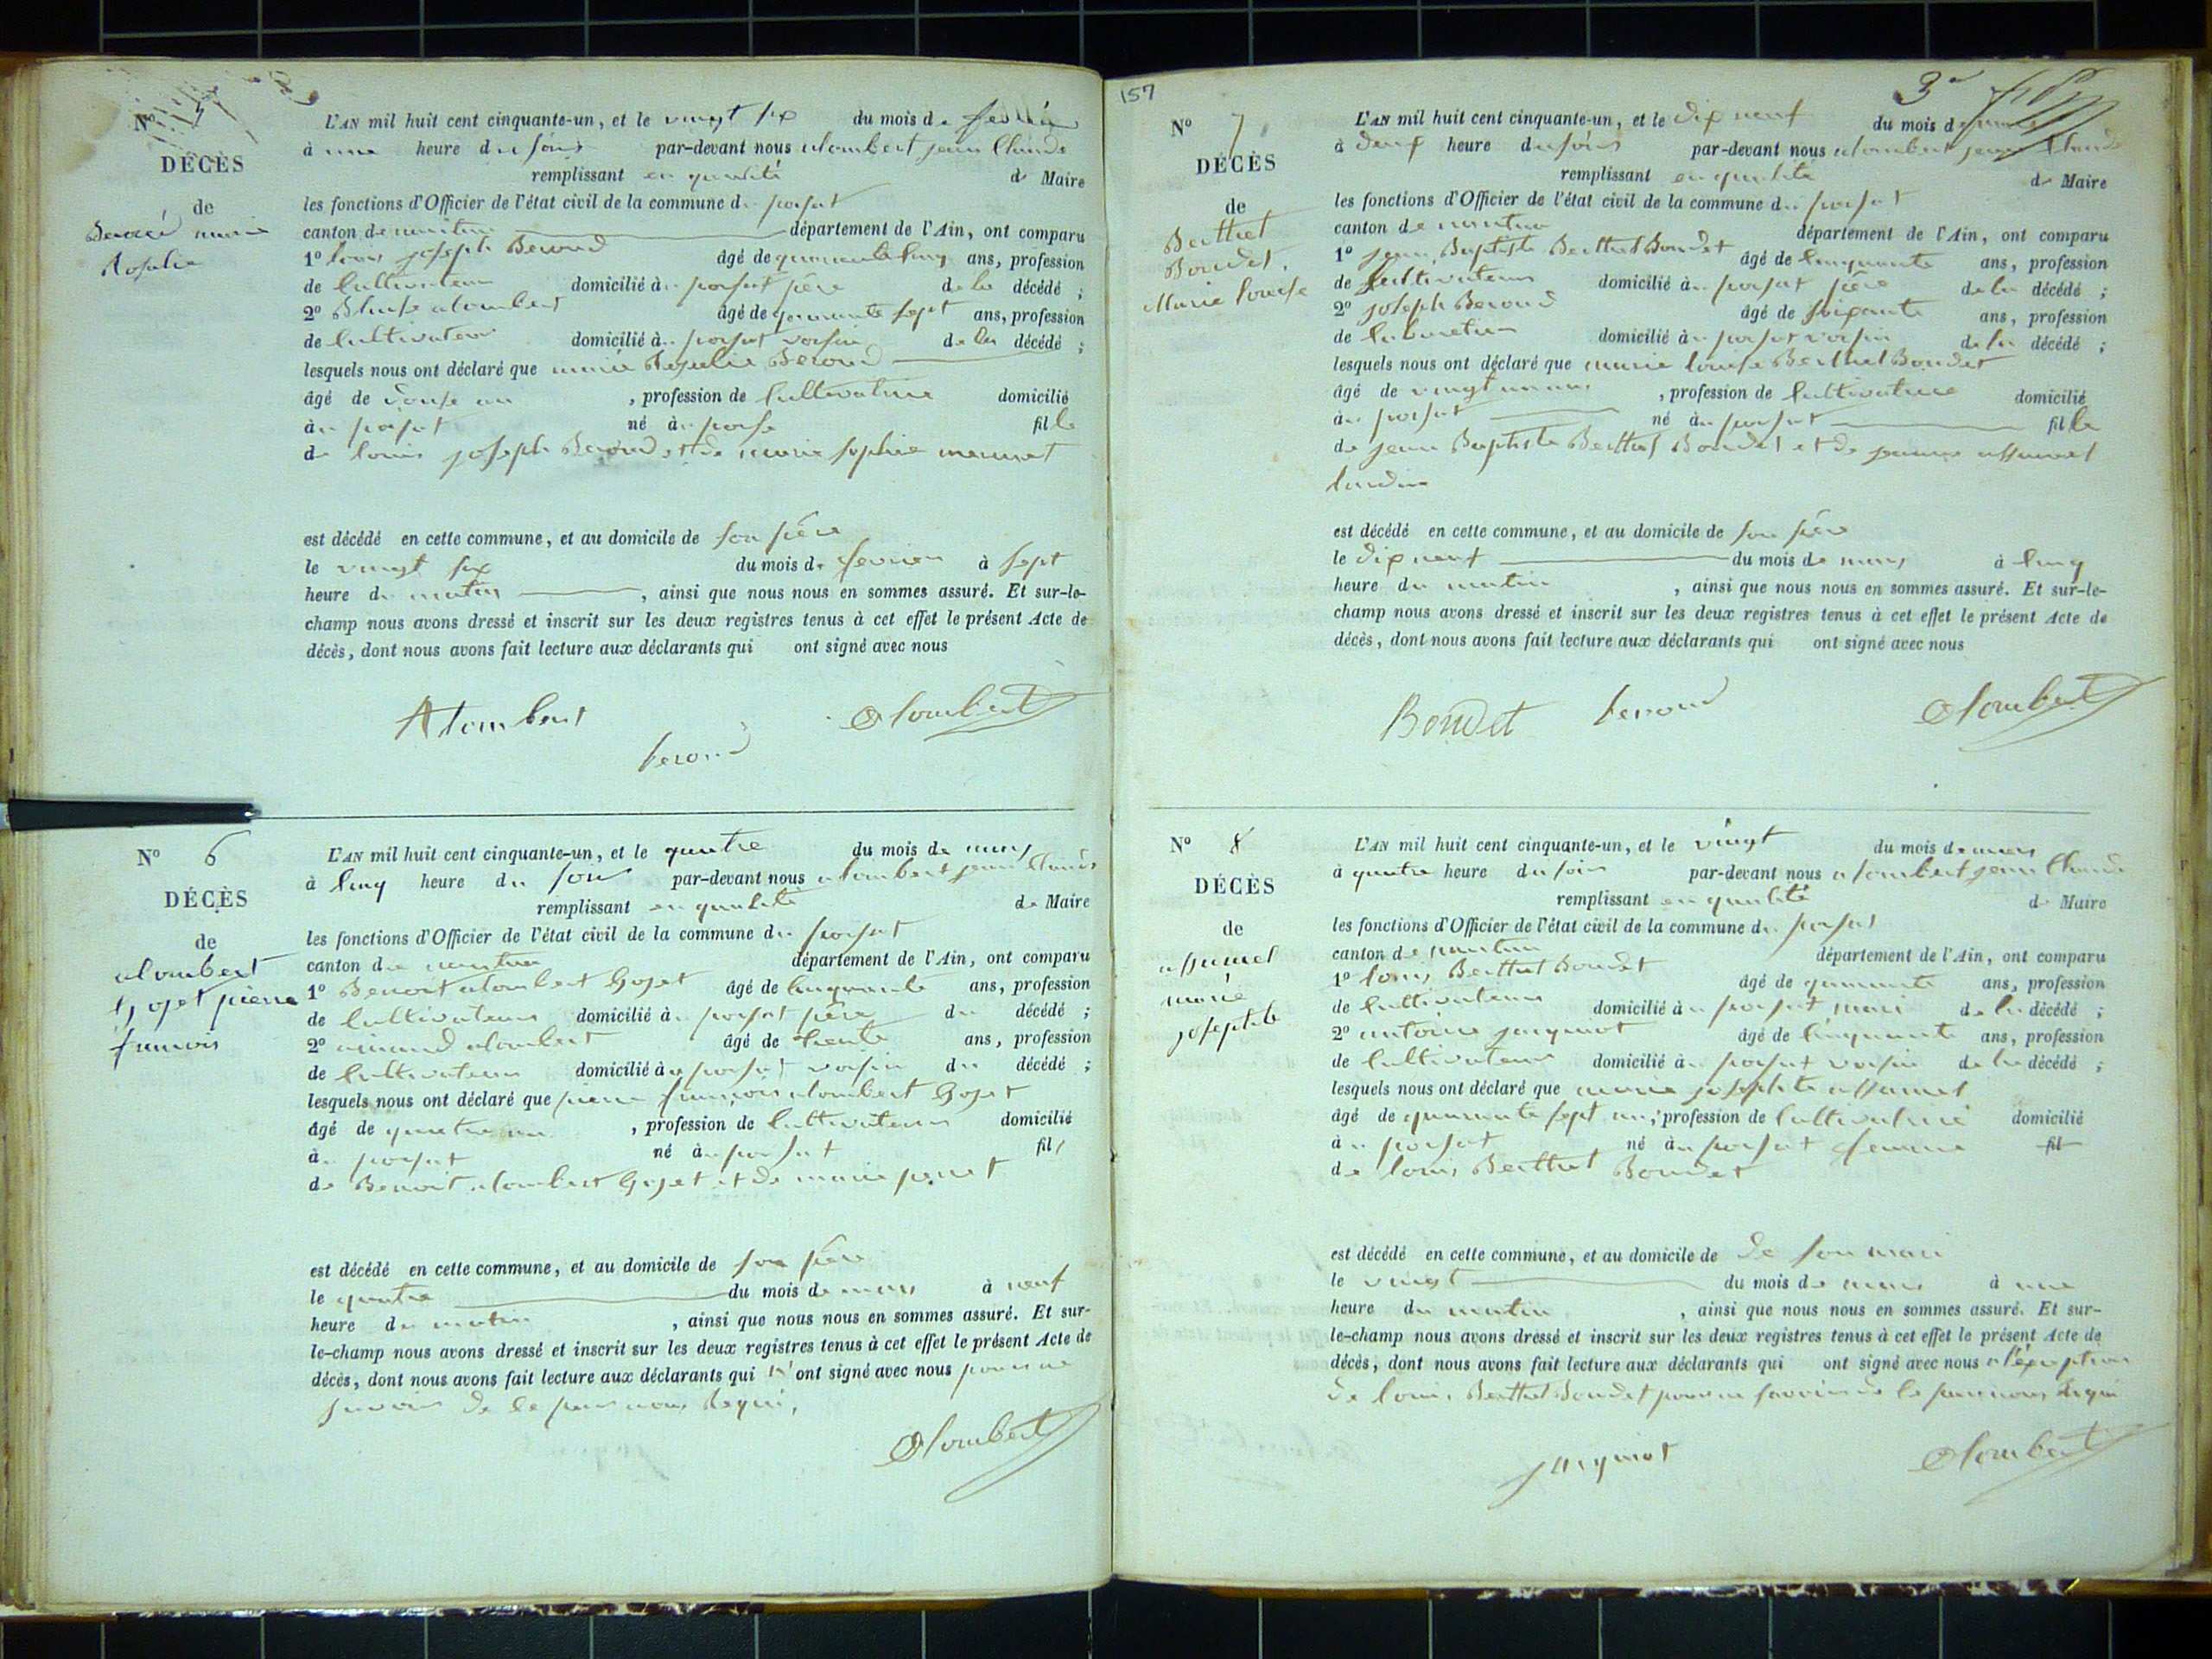 N°
DÉCÈS
de
Beroud marie
Rosalie
L'AN mil huit cent cinquante-un, et le vingt six du mois de fevrier
à une heure du soir par-devant nous alombert jean Claude
remplissant en qualité de Maire
les fonctions d'Officier de l'état civil de la commune du poizat
canton de nantua département de l'Ain, ont comparu
1° louis joseph Beroud âgé de quarante cinq ans, profession
de Cultivateur domicilié au poizat père de la décédé ;
2° Blaise alombert âgé de quarante sept ans, profession
de Cultivateur domicilié au poizat voisin de la décédé ;
lesquels nous ont déclaré que marie Rosalie Beroud
âgé de douse an , profession de Cultivatrice domicilié
au poizat né au poiza fille
de louis joseph Beroud et de marie sophie mermet
est décédé en cette commune, et au domicile de son père
le vingt six du mois de fevrier à sept
heure du matin , ainsi que nous nous en sommes assuré. Et sur-le-
champ nous avons dressé et inscrit sur les deux registres tenus à cet effet le présent Acte de
décès, dont nous avons fait lecture aux déclarants qui ont signé avec nous
Alombert alombert
beroud
N° 6
DÉCÈS
de
alombert
goget pierre
francois
L'AN mil huit cent cinquante-un, et le quatre du mois de mars
à cinq heure du soir par-devant nous alombert jean Claude
remplissant en qualité de Maire
les fonctions d'Officier de l'état civil de la commune du poizat
canton de nantua département de l'Ain, ont comparu
1° Benoit alombert Goget âgé de cinquante ans, profession
de Cultivateur domicilié au poizat père du décédé ;
2° aimand alombert âgé de trente ans, profession
de Cultivateur domicilié au poizat voisin du décédé ;
lesquels nous ont déclaré que pierre françois alombert Goget
âgé de quatre an , profession de Cultivateur domicilié
au poizat né au poizat fils
de Benoit alombert Goget et de marie
est décédé en cette commune, et au domicile de son père
le quatre du mois de mars à neuf
heure du matin , ainsi que nous nous en sommes assuré. Et sur-
le-champ nous avons dressé et inscrit sur les deux registres tenus à cet effet le présent Acte de
décès, dont nous avons fait lecture aux déclarants qui n'ont signé avec nous pour ne
savoir de ce par nous Requi,
alombert
157
3e
N° 7
DÉCÈS
de
Berthet
Bondet
Marie louise
L'AN mil huit cent cinquante-un, et le dix neuf du mois de mars
à deux heure du soir par-devant nous alombert jean Claude
remplissant en qualité de Maire
les fonctions d'Officier de l'état civil de la commune du poizat
canton de nantua département de l'Ain, ont comparu
1° jean Baptiste Berthet Bondet âgé de cinquante ans, profession
de Cultivateur domicilié au poizat père de la décédé ;
2° joseph Beroud âgé de soixante ans, profession
de domicilié au poizat voisin de la décédé ;
lesquels nous ont déclaré que marie louise Berthet Bondet
âgé de vingt un ans , profession de Cultivatrice domicilié
au poizat né au poizat fille
de jean Baptiste Berthet Bondet et de jeanne assumel
lurdin
est décédé en cette commune, et au domicile de son père
le dix neuf du mois de mars à cinq
heure du matin , ainsi que nous nous en sommes assuré. Et sur-le-
champ nous avons dressé et inscrit sur les deux registres tenus à cet effet le présent Acte de
décès, dont nous avons fait lecture aux déclarants qui ont signé avec nous
Bondet beroud alombert
N° 8
DÉCÈS
de
assumel
marie
josephte
L'AN mil huit cent cinquante-un, et le vingt du mois de mars
à quatre heure du soir par-devant nous alombert jean Claude
remplissant en qualité de Maire
les fonctions d'Officier de l'état civil de la commune du poizat
canton de nantua département de l'Ain, ont comparu
1° louis Berthet Bondet âgé de quarante ans, profession
de Cultivateur domicilié au poizat mari de la décédé ;
2° antoine jacquiot âgé de cinquante ans, profession
de Cultivateur domicilié au poizat voisin de la décédé ;
lesquels nous ont déclaré que marie josephte assumel
âgé de quarante sept an, profession de Cultivatrice domicilié
au poizat né au poizat femme fil
de louis Berthet Bondet
est décédé en cette commune, et au domicile de de son mari
le vingt du mois de mars à une
heure du matin , ainsi que nous nous en sommes assuré. Et sur-
le-champ nous avons dressé et inscrit sur les deux registres tenus à cet effet le présent Acte de
décès, dont nous avons fait lecture aux déclarants qui ont signé avec nous a l'éxception
de louis Berthet Bondet pour ne savoir de ce par nous Requi
jacquiot alombert